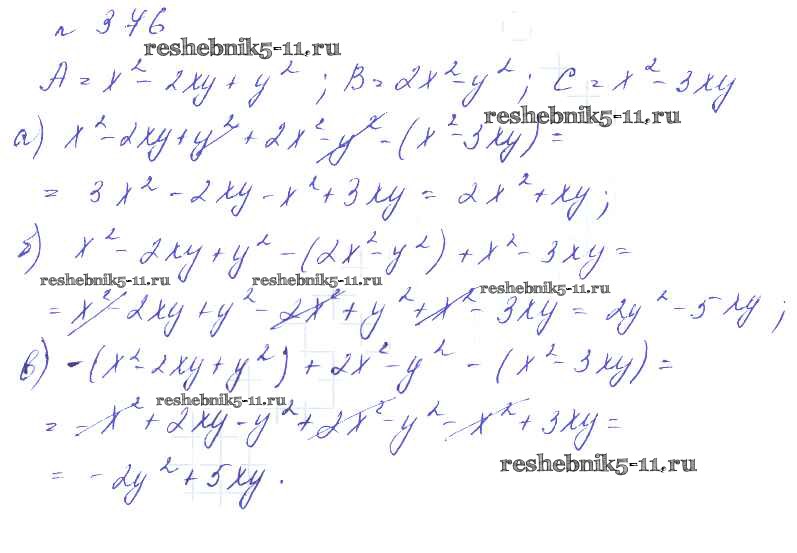 № 376
reshebnik5-11.ru
A = x² - 2xy + y² ; B = 2x² - y² ; C = x² - 3xy
reshebnik5-11.ru
а) x² - 2xy + y² + 2x² - y² - (x² - 3xy) =
= 3x² - 2xy - x² + 3xy = 2x² + xy ;
б) x² - 2xy + y² - (2x² - y²) + x² - 3xy =
reshebnik5-11.ru reshebnik5-11.ru reshebnik5-11.ru
= x² - 2xy + y² - 2x² + y² + x² - 3xy = 2y² - 5xy ;
в) -(x² - 2xy + y²) + 2x² - y² - (x² - 3xy) =
reshebnik5-11.ru
= -x² + 2xy - y² + 2x² - y² - x² + 3xy =
reshebnik5-11.ru
= -2y² + 5xy .